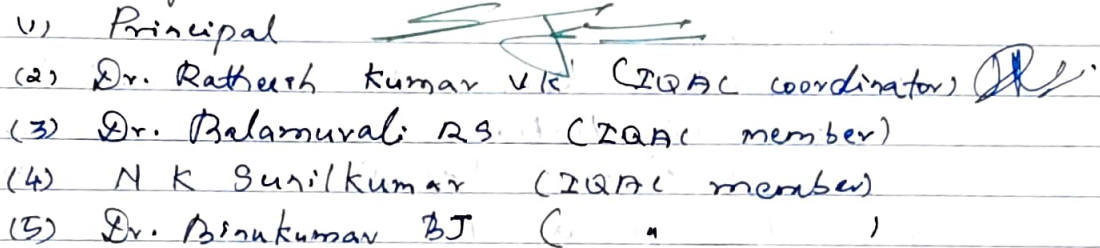 (1) Principal
(2) Dr. Ratheesh Kumar VK (IQAC coordinator)
(3) Dr. Balamurali RS (IQAC member)
(4) N K Sunilkumar (IQAC member)
(5) Dr. Binukumar BJ ( " )